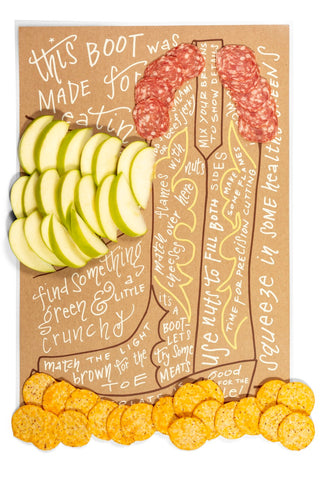 this BOOT was
MADE for
eating
SALAMI
MIX YOUR BROWNS
TO SHOW DETAILS
with nuts
match flames
over here
cheese
USE NUTS TO FILL BOTH SIDES
MAKE
SOME FLAMES
TIME FOR PRECISION CUTTING
squeeze in some healthy GREENS
find something
green & a
LITTLE
crunchy
it's
A
BOOT-
LET'S
try some
MEATS
match THE LIGHT
brown for the
TOE
Good
FOR THE